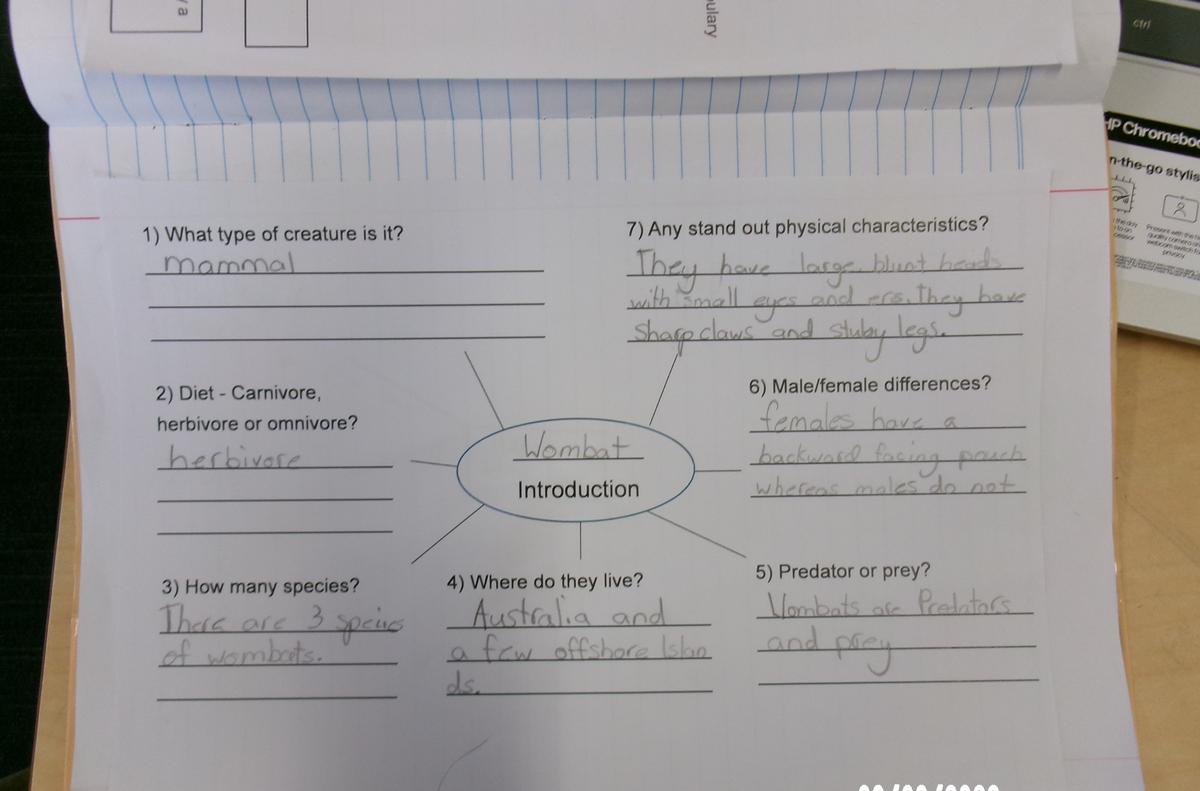 y a
oulary
ctrl
HP Chromeboo
n-the-go stylis
1) What type of creature is it?
mammal
7) Any stand out physical characteristics?
They have large, blunt heads
with small eyes and ers. They have
sharp claws and stuby legs.
2) Diet - Carnivore,
herbivore or omnivore?
herbivore
Wombat
Introduction
6) Male/female differences?
females have a
backward facing pouch
whereas males do not
3) How many species?
There are 3 species
of wombats.
4) Where do they live?
Australia and
a few offshore Islan
ds.
5) Predator or prey?
Wombats are Predators
and prey